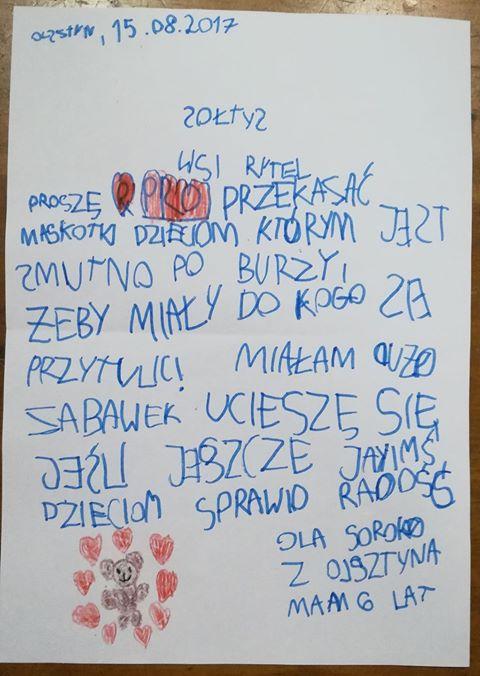 OLSZTYN, 15.08.2017
SOŁTYS
WSI RYTEL
PROSZĘ PRZEKASAĆ
MASKOTKI DZIECIOM KTÓRYM JEST
SMUTNO PO BURZY,
ŻEBY MIAŁY DO KOGO SIĘ
PRZYTULIĆ! MIAŁAM DUŻO
SABAWEK UCIESZĘ SIĘ
JEŚLI JESZCZE JAKIMŚ
DZIECIOM SPRAWIĄ RADOŚĆ
OLA SOROKO
Z OLSZTYNA
MAM 6 LAT